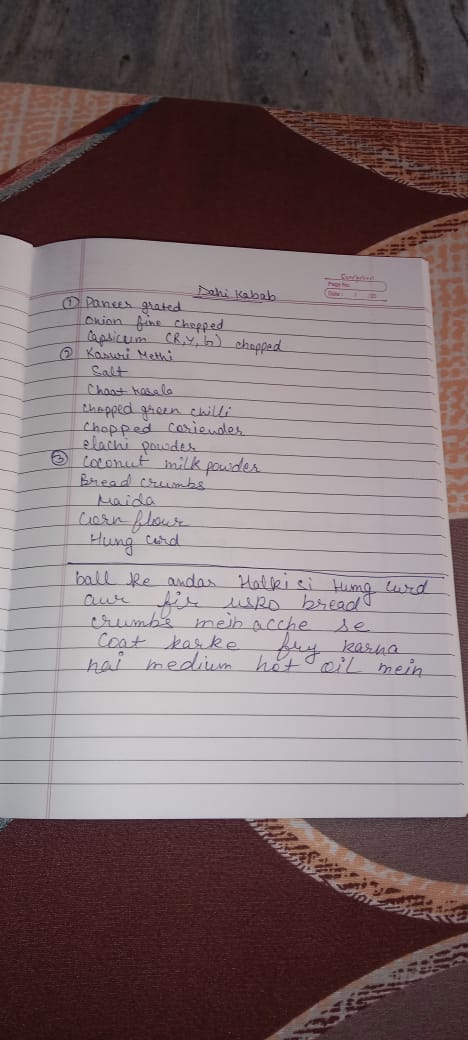 Dahi Kabab
Page No.
Date: / /20
① Paneer grated
Onion fine chopped
Capsicum (R, Y, G) chopped
② Kasuri Methi
Salt
Chaat Masala
chopped green chilli
Chopped coriender
elachi powder
③ Coconut milk powder
Bread crumbs
Maida
Corn flour
Hung Curd
ball ke andar Halki si Hung Curd
aur fir usko bread
crumbs mein acche se
Coat karke fry karna
hai medium hot oil mein